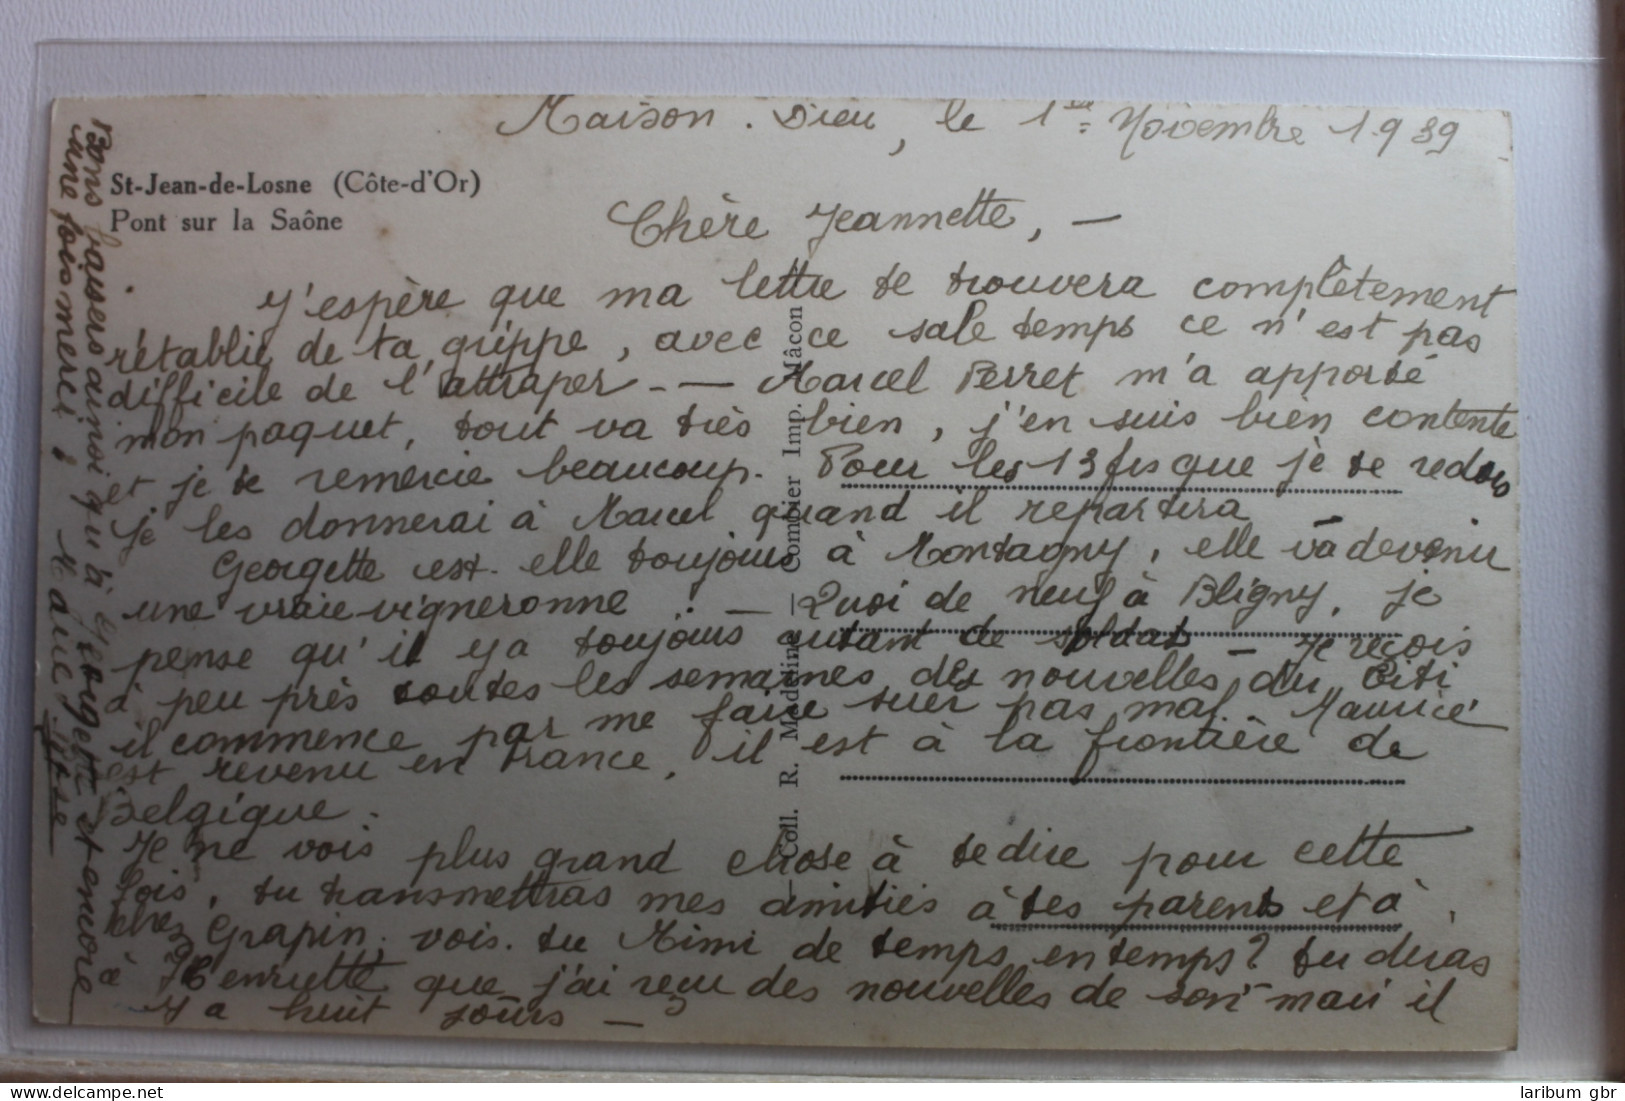 Maison-Dieu, le 1er Novembre 1939
St-Jean-de-Losne (Côte-d'Or)
Pont sur la Saône
Chère Jeannette, —
J'espère que ma lettre te trouvera complètement
rétablie de ta grippe, avec ce sale temps ce n'est pas
difficile de l'attraper - — Marcel Perret m'a apporté
mon paquet, tout va très bien, j'en suis bien contente
et je te remercie beaucoup. Pour les 13 frs que je te redois
je les donnerai à Marcel quand il repartira
Georgette est-elle toujours à Montagny, elle va devenir
une vraie vigneronne ! — Quoi de neuf à Bligny, je
pense qu'il y a toujours autant de soldats — Je reçois
à peu près toutes les semaines des nouvelles du Titi
il commence par me faire suer pas mal. Maurice
est revenu en France, il est à la frontière de
Belgique.
Je ne vois plus grand chose à te dire pour cette
fois, tu transmettras mes amitiés à tes parents et à
chez Grapin, vois-tu Mimi de temps en temps? tu diras
à Henriette que j'ai reçu des nouvelles de son mari il
y a huit jours —
Bons baisers ainsi qu'à Georgette et encore
une fois merci !
Coll. R. Madeline — Combier Imp. Mâcon
laribum gbr